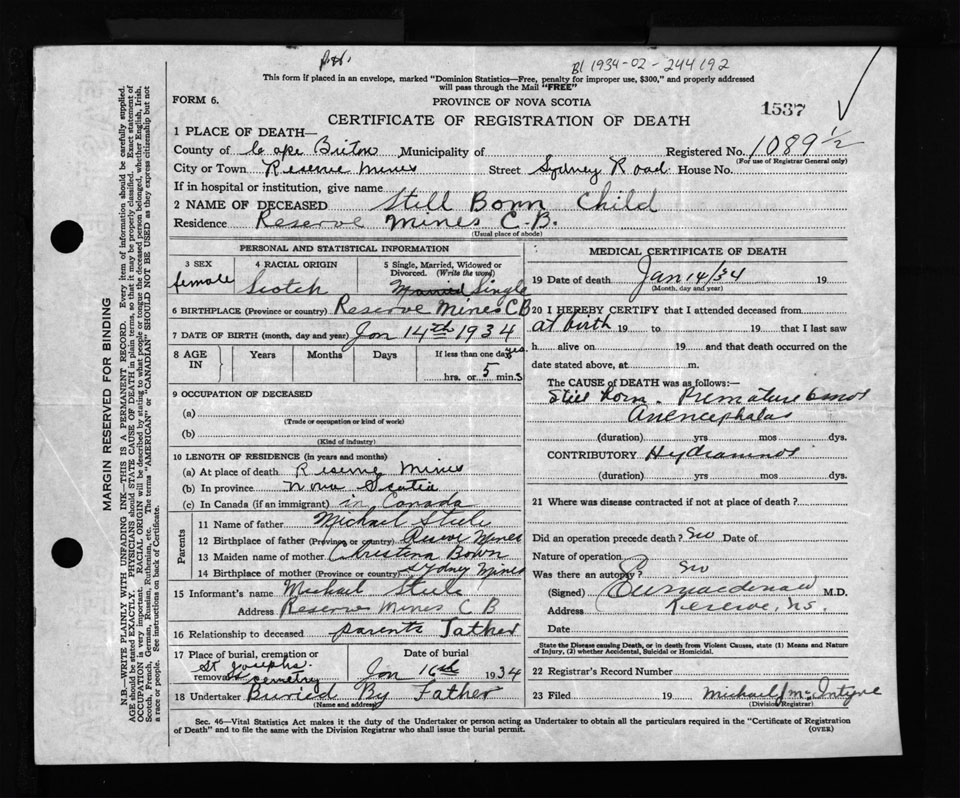 B1 1934-02-244192
This form if placed in an envelope, marked "Dominion Statistics—Free, penalty for improper use, $300," and properly addressed
will pass through the Mail "FREE"
FORM 6.
PROVINCE OF NOVA SCOTIA
1537
CERTIFICATE OF REGISTRATION OF DEATH
1 PLACE OF DEATH—
County of Cape Breton Municipality of
Registered No. 1089 ½
(For use of Registrar General only)
City or Town Reserve Mines Street Sydney Road House No.
If in hospital or institution, give name
2 NAME OF DECEASED Still Born Child
Residence Reserve Mines C.B.
(Usual place of abode)
PERSONAL AND STATISTICAL INFORMATION
3 SEX
female
4 RACIAL ORIGIN
Scotch
5 Single, Married, Widowed or
Divorced. (Write the word)
Single
6 BIRTHPLACE (Province or country) Reserve Mines CB
7 DATE OF BIRTH (month, day and year) Jan 14th 1934
8 AGE IN
Years Months Days If less than one day yes.
hrs. or 5 mins
9 OCCUPATION OF DECEASED
(a)
(Trade or occupation or kind of work)
(b)
(Kind of industry)
10 LENGTH OF RESIDENCE (in years and months)
(a) At place of death Reserve Mines
(b) In province Nova Scotia
(c) In Canada (if an immigrant) in Canada
Parents
11 Name of father Michael Steele
12 Birthplace of father (Province or country) Reserve Mines
13 Maiden name of mother Christena Bown
14 Birthplace of mother (Province or country) Sydney Mines
15 Informant's name Michael Steele
Address Reserve Mines C B
16 Relationship to deceased parents Father
17 Place of burial, cremation or
removal
St Josephs
cemetry
Date of burial
Jan 16th 1934
18 Undertaker Buried By Father
(Name and address)
MEDICAL CERTIFICATE OF DEATH
19 Date of death Jan 14/34 19
(Month, day and year)
20 I HEREBY CERTIFY that I attended deceased from
at birth 19 to 19 that I last saw
h alive on 19 and that death occurred on the
date stated above, at m.
The CAUSE OF DEATH was as follows:
Still born. Premature 6 mos
Anencephalas
(duration) yrs mos dys.
CONTRIBUTORY Hydramnos
(duration) yrs mos dys.
21 Where was disease contracted if not at place of death?
Did an operation precede death? No Date of
Nature of operation
Was there an autopsy? No
(Signed) M.D.
Address Reserve, N.S.
Date
State the Disease causing Death, or in death from Violent Causes, state (1) Means and Nature
of Injury, (2) whether Accidental, Suicidal or Homicidal.
22 Registrar's Record Number
23 Filed 19 Michael J McIntyre
(Division Registrar)
Sec. 46—Vital Statistics Act makes it the duty of the Undertaker or person acting as Undertaker to obtain all the particulars required in the "Certificate of Registration
of Death" and to file the same with the Division Registrar who shall issue the burial permit.
(OVER)
MARGIN RESERVED FOR BINDING
N.B.—WRITE PLAINLY WITH UNFADING INK—THIS IS A PERMANENT RECORD. Every item of information should be carefully supplied.
AGE should be stated EXACTLY. PHYSICIANS should STATE CAUSE OF DEATH in plain terms, so that it may be properly classified. Exact statement of
OCCUPATION is very important. RACIAL ORIGIN will be described by stating to what people or tongue the deceased person belonged, whether English, Irish,
Scotch, French, German, Russian, Ruthenian, etc. The terms "AMERICAN" or "CANADIAN" SHOULD NOT BE USED as they express citizenship but not
a race or people. See instructions on back of Certificate.